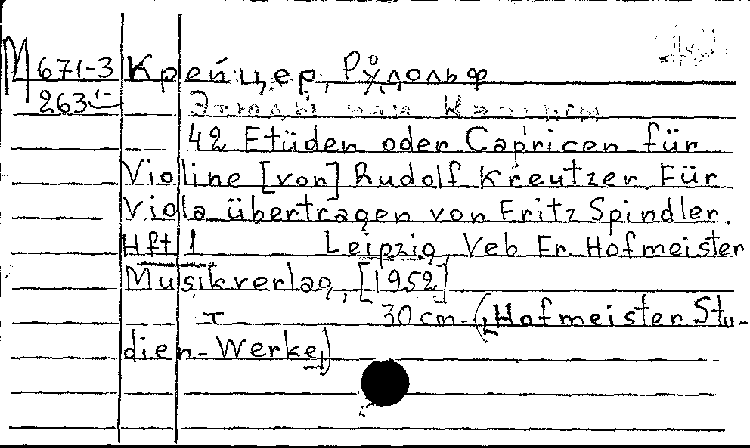 М 671-3 Крейцер, Рудольф
263 Этюды или Каприсы
42 Etüden oder Capricen für
Violine [von] Rudolf Kreutzer. Für
Viola übertragen von Fritz Spindler.
Hft 1 Leipzig, Veb Fr. Hofmeister
Musikverlag, [1952]
30 cm (Hofmeister Stu-
dien-Werke)